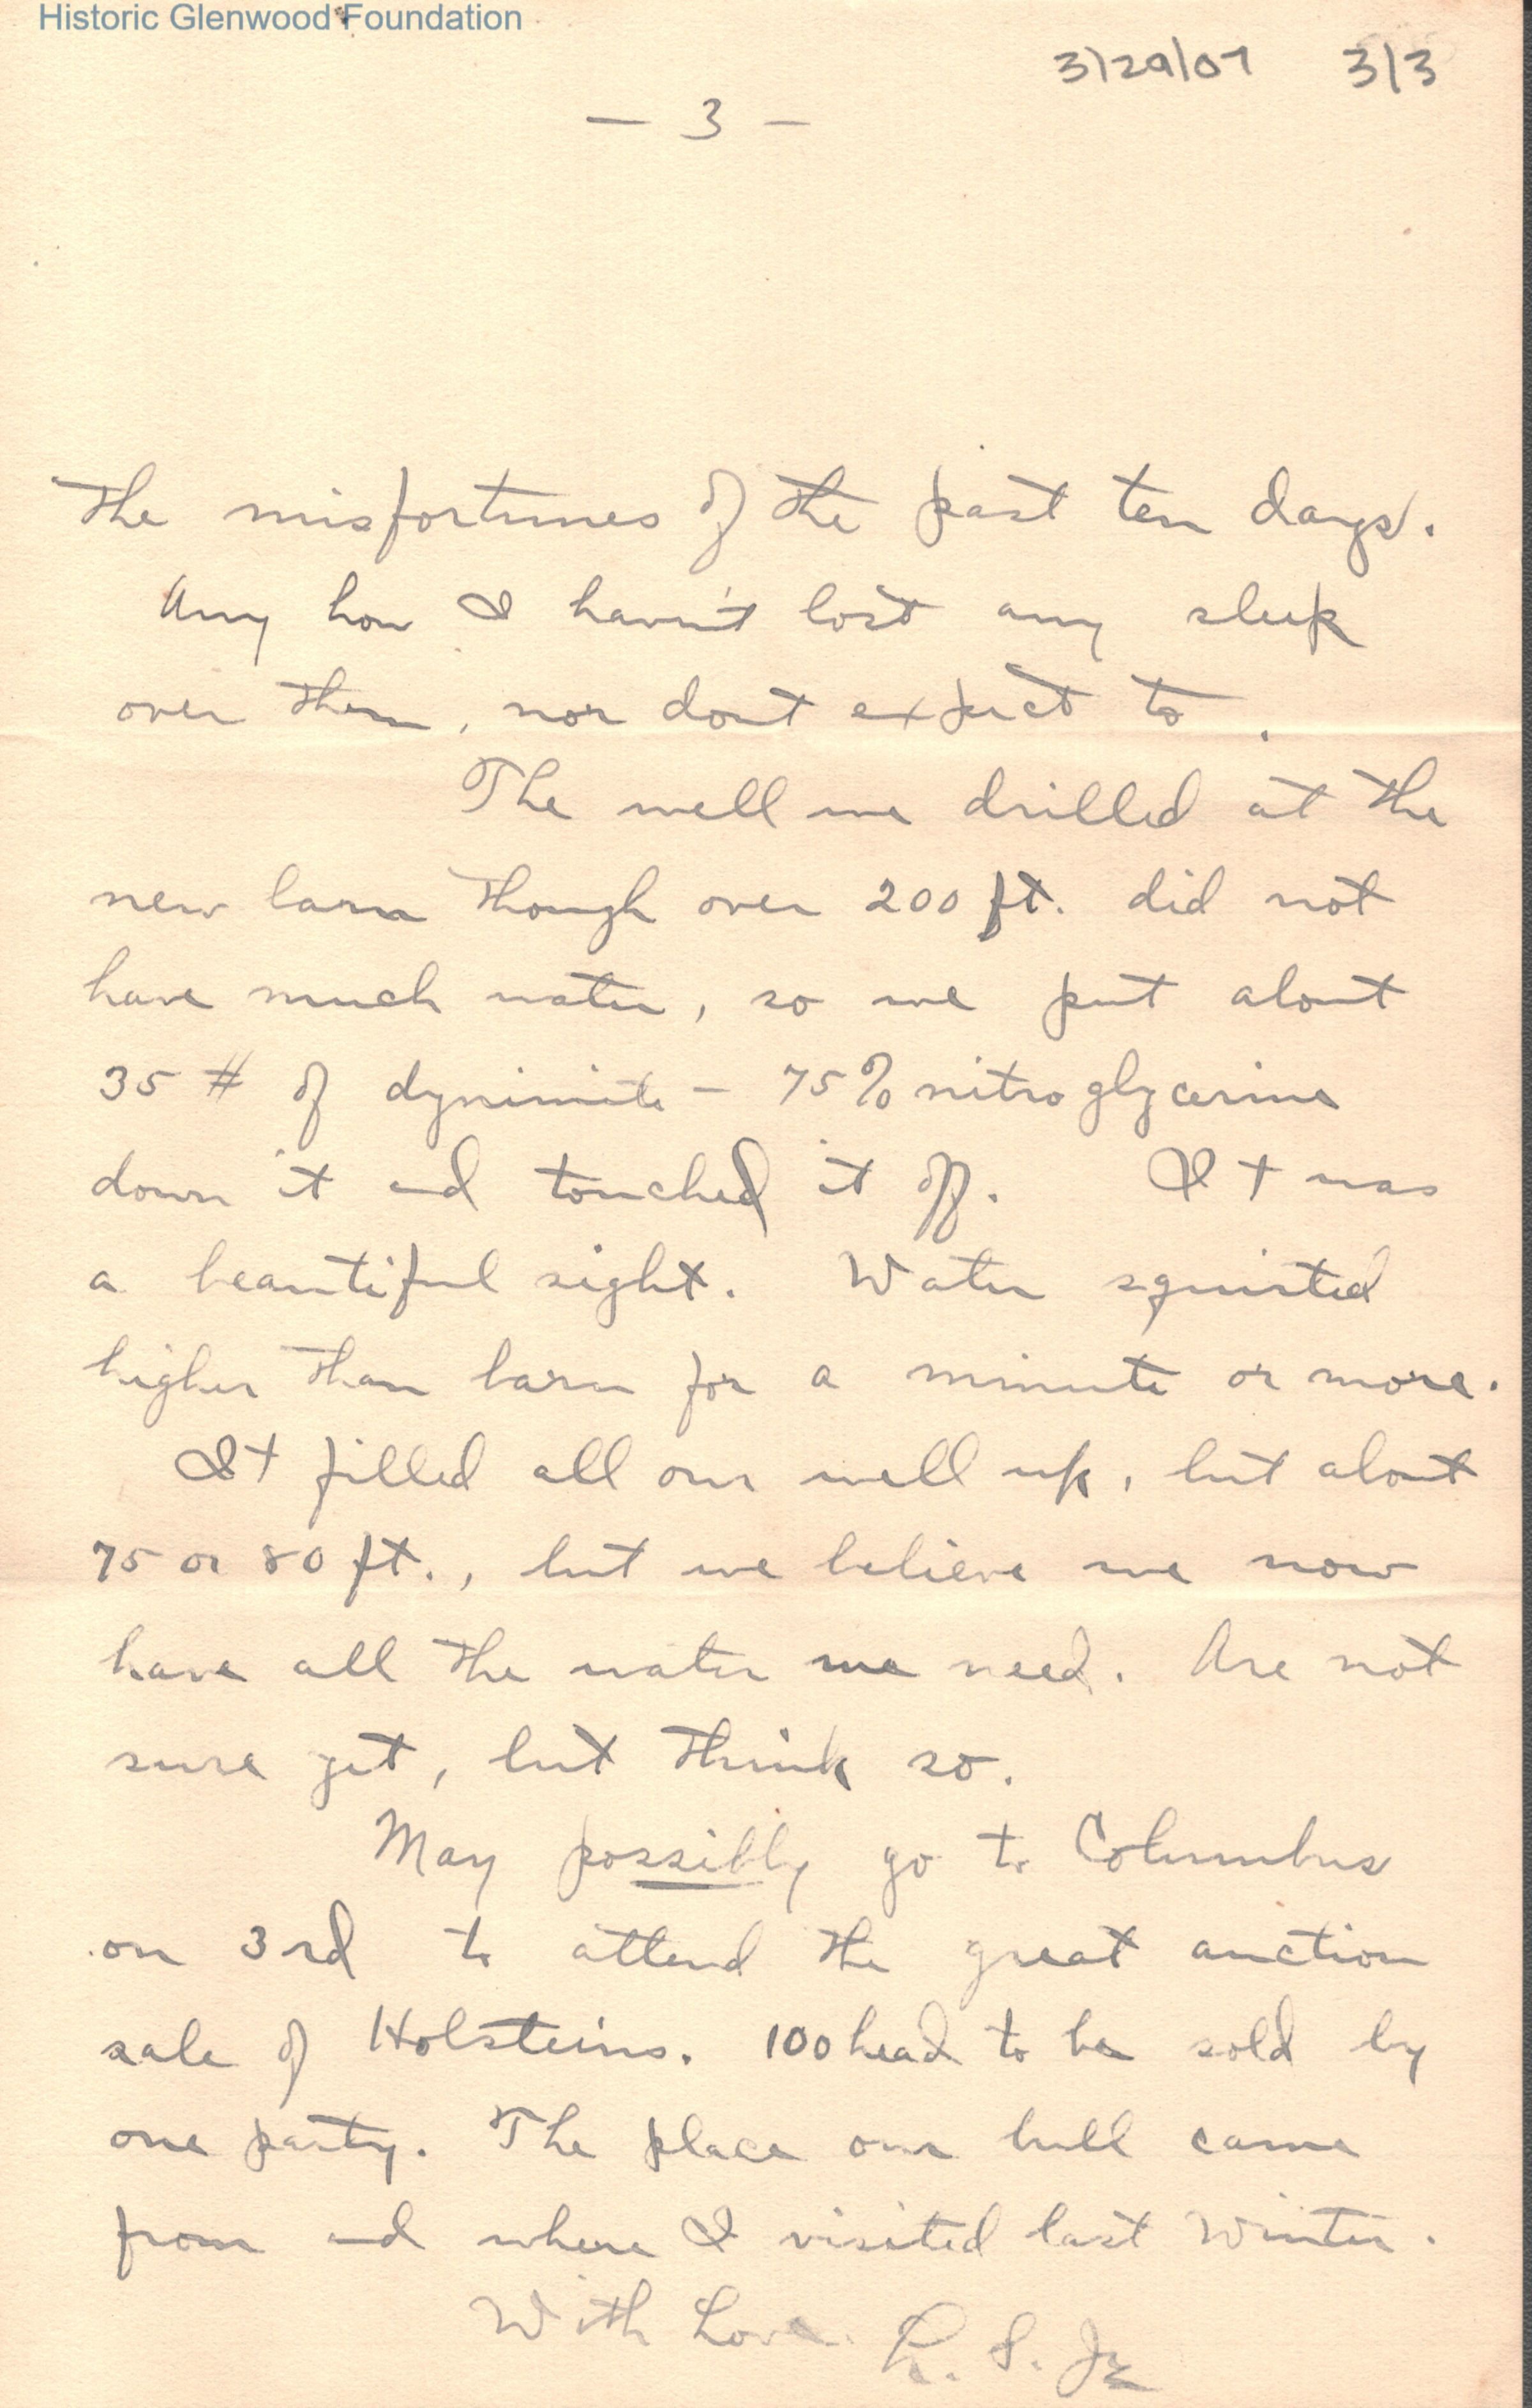 Historic Glenwood Foundation
3/29/07 3/3
- 3 -
the misfortunes of the past ten days.
Any how I haven't lost any sleep
over them, nor dont expect to.
The well we drilled at the
new barn though over 200 ft. did not
have much water, so we put about
35 # of dynimite - 75% nitroglycerine
down it and touched it off. It was
a beautiful sight. Water squirted
higher than barn for a minute or more.
It filled all our well up, but about
75 or 80 ft., but we believe we now
have all the water we need. Are not
sure yet, but think so.
May possibly go to Columbus
on 3rd to attend the great auction
sale of Holsteins. 100 head to be sold by
one party. The place our bull came
from and where I visited last Winter.
With Love. R. S. Jr